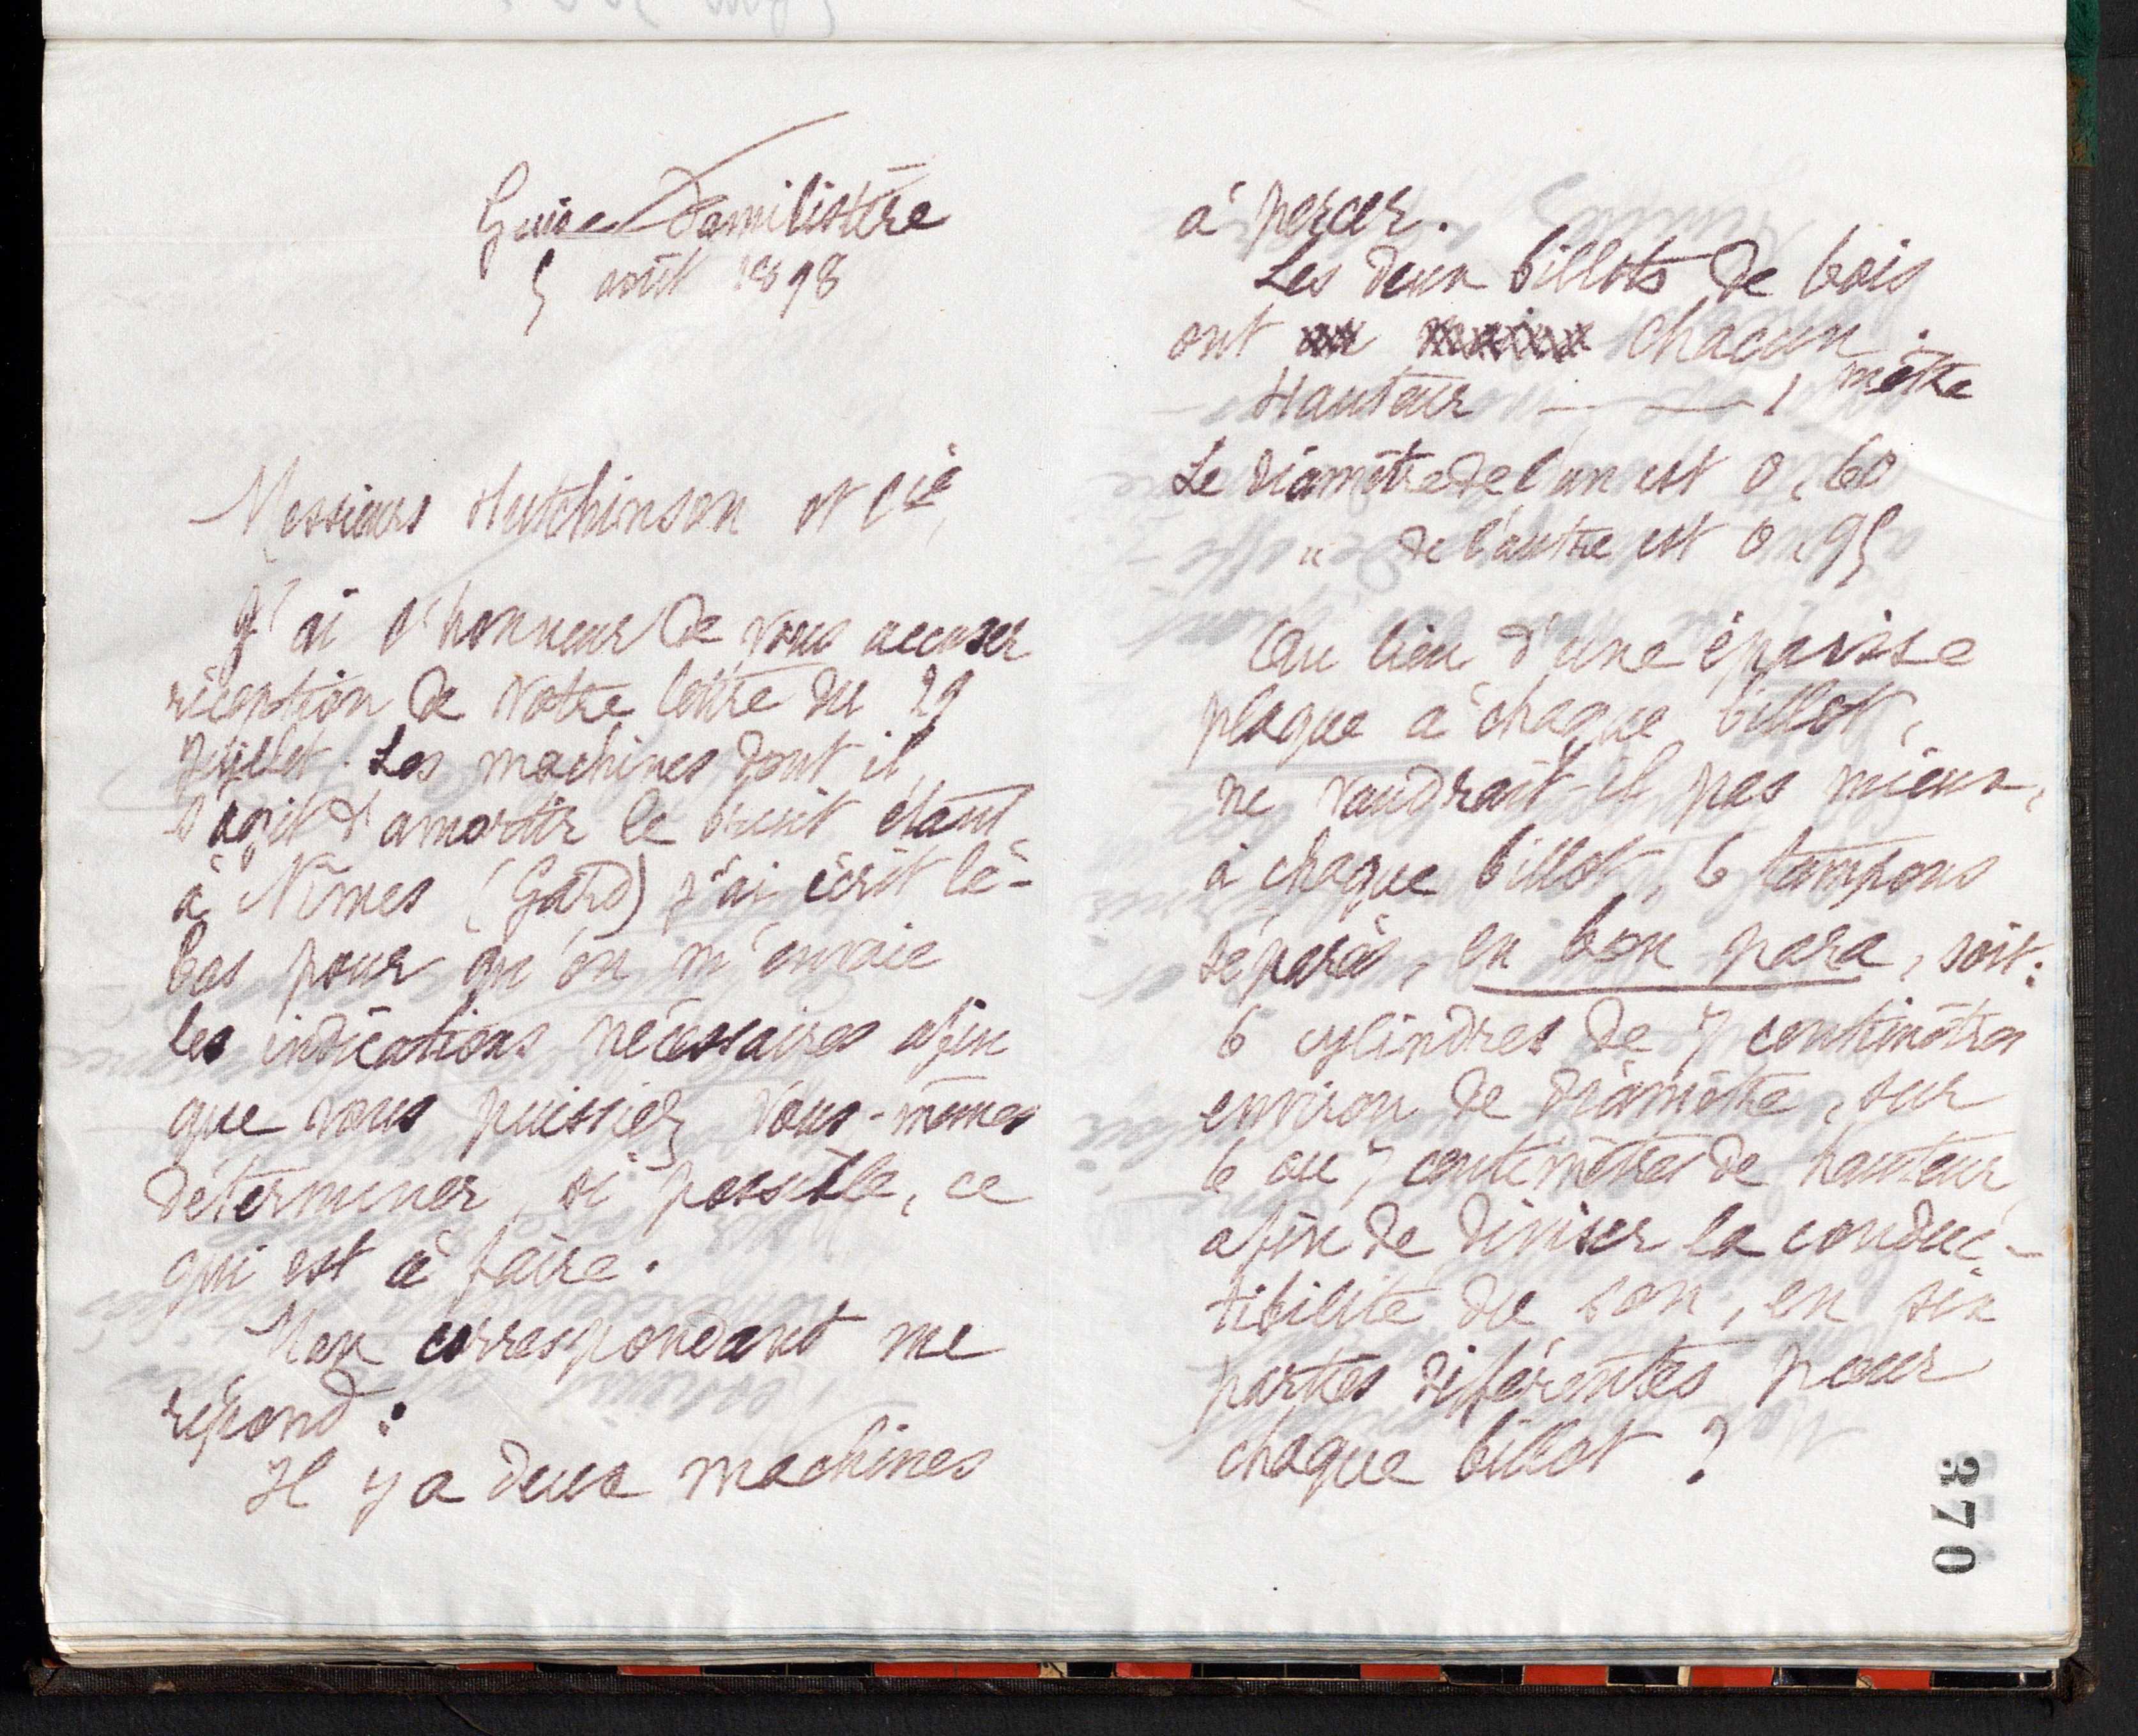 Guise Familistère
5 août 1898
Messieurs Hutchinson et Cie,
J'ai l'honneur de vous accuser
réception de votre lettre du 29
juillet. Les machines dont il
s'agit d'amortir le bruit étant
à Nîmes (Gard) j'ai écrit là-
bas pour qu'on m'envoie
les indications nécessaires afin
que vous puissiez vous-mêmes
déterminer, si possible, ce
qui est à faire.
Mon correspondant me
répond :
Il y a deux machines
à percer.
Les deux billots de bois
ont chacun.
Hauteur — — 1 mètre
Le diamètre de l'un est 0,60
" de l'autre est 0,95
Au lieu d'une épaisse
plaque à chaque billot,
ne vaudrait-il pas mieux,
à chaque billot, 6 tampons
séparés, en bon para, soit:
6 cylindres de 7 centimètres
environ de diamètre, sur
6 ou 7 centimètres de hauteur,
afin de diviser la conduc-
tibilité du son, en six
parties différentes pour
chaque billot ?
370